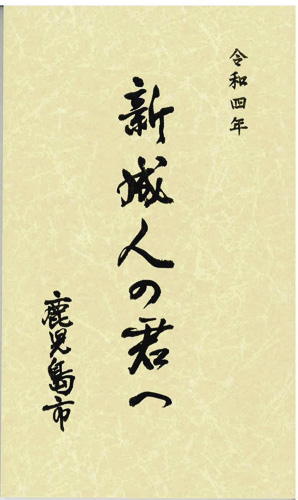 令和四年
新成人の君へ
鹿児島市